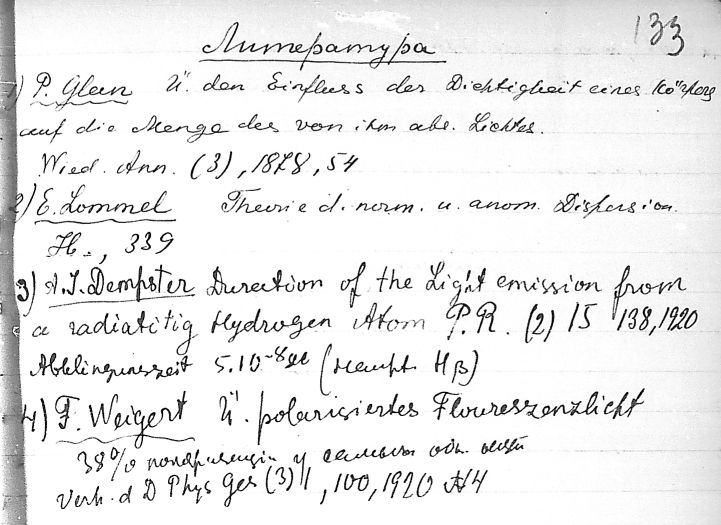 133
Литература
1) P. Glan Ü. den Einfluss der Dichtigheit eines Körpers
auf die Menge des von ihm abs. Lichtes.
Wied. Ann. (3), 1878, 54
2) E. Lommel Theorie d. norm. u. anom. Dispersion.
Ib., 339
3) A. J. Dempster Duration of the Light emission from
a radiatitig Hydrogen Atom P. R. (2) 15 138, 1920
5.10⁻⁸ sec (Hβ)
4) F. Weigert Ü. polarisiertes Floureszenzlicht
38% поляризации у
Verh. d D Phys Ges (3) 1, 100, 1920 H4